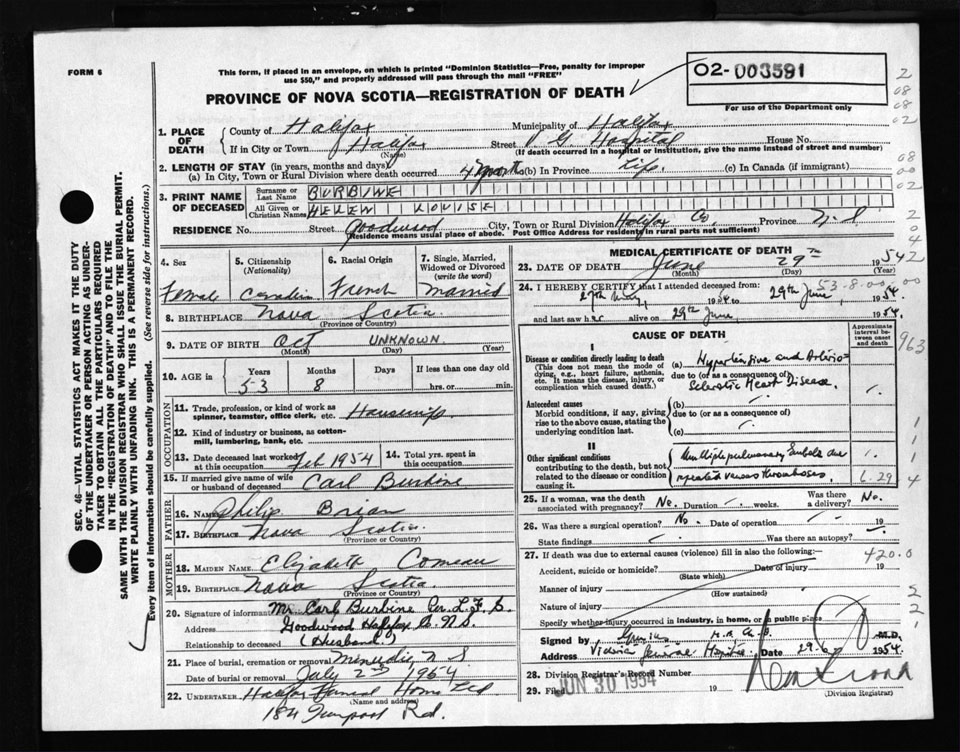 FORM 6
This form, if placed in an envelope, on which is printed "Dominion Statistics—Free, penalty for improper
use $50," and properly addressed will pass through the mail "FREE"
02- 003591
PROVINCE OF NOVA SCOTIA—REGISTRATION OF DEATH
For use of the Department only
1. PLACE OF DEATH
County of Halifax Municipality of Halifax
If in City or Town Halifax Street V. G. Hospital House No.
(Name) (If death occurred in a hospital or institution, give the name instead of street and number)
2. LENGTH OF STAY (in years, months and days)
(a) In City, Town or Rural Division where death occurred 4 months (b) In Province Life. (c) In Canada (if immigrant)
3. PRINT NAME OF DECEASED
Surname or Last Name BURBINE
All Given or Christian Names HELEN LOUISE
RESIDENCE No. Street Goodwood City, Town or Rural Division Halifax Co. Province N.S
(Residence means usual place of abode. Post Office Address for residents in rural parts not sufficient)
4. Sex Female
5. Citizenship (Nationality) Canadian
6. Racial Origin French
7. Single, Married, Widowed or Divorced (write the word) Married
8. BIRTHPLACE Nova Scotia
(Province or Country)
9. DATE OF BIRTH Oct UNKNOWN
(Month) (Day) (Year)
10. AGE in
Years Months Days If less than one day
53 8 hrs. or min.
OCCUPATION
11. Trade, profession, or kind of work as
spinner, teamster, office clerk, etc. Housewife
12. Kind of industry or business, as cotton-
mill, lumbering, bank, etc.
13. Date deceased last worked at this occupation Feb 1954
14. Total yrs. spent in this occupation
15. If married give name of wife
or husband of deceased Carl Burbine
FATHER
16. NAME Philip Brian
17. BIRTHPLACE Nova Scotia
(Province or Country)
MOTHER
18. MAIDEN NAME Elizabeth Comeau
19. BIRTHPLACE Nova Scotia
(Province or Country)
20. Signature of informant Mr. Carl Burbine Per. L.F.S.
Address Goodwood Halifax Co. N.S.
Relationship to deceased (Husband.)
21. Place of burial, cremation or removal Minudie N S
Date of burial or removal July 2nd 1954
22. UNDERTAKER Halifax Funeral Home Ltd
(Name and address)
Rd.
MEDICAL CERTIFICATE OF DEATH
23. DATE OF DEATH June 29th 1954
(Month) (Day) (Year)
24. I HEREBY CERTIFY that I attended deceased from:
27th May, 1954 to 29th June, 1954.
and last saw her alive on 29th June, 1954.
CAUSE OF DEATH
Approximate interval between onset and death
I
Disease or condition directly leading to death
(This does not mean the mode of
dying, e.g., heart failure, asthenia,
etc. It means the disease, injury, or
complication which caused death.)
(a) Hypertensive and Arterio-
due to (or as a consequence of)
Sclerotic Heart Disease.
Antecedent causes
Morbid conditions, if any, giving
rise to the above cause, stating the
underlying condition last.
(b)
due to (or as a consequence of)
(c)
II
Other significant conditions
contributing to the death, but not
related to the disease or condition
causing it.
Multiple pulmonary Emboli due
repeated venous thromboses
25. If a woman, was the death
associated with pregnancy? No. Duration weeks. Was there a delivery? No.
26. Was there a surgical operation? No. Date of operation 19
State findings Was there an autopsy?
27. If death was due to external causes (violence) fill in also the following:— 420.0
Accident, suicide or homicide? Date of injury 19
(State which)
Manner of injury
(How sustained)
Nature of injury
Specify whether injury occurred in industry, in home, or in public place
Signed by M.D.
Address Victoria General Hospital Date 29.6 1954.
28. Division Registrar's Record Number
29. Filed JUN 30 1954 19
(Division Registrar)
SEC. 46—VITAL STATISTICS ACT MAKES IT THE DUTY
OF THE UNDERTAKER OR PERSON ACTING AS UNDER-
TAKER TO OBTAIN ALL THE PARTICULARS REQUIRED
IN THE "REGISTRATION OF DEATH" AND TO FILE THE
SAME WITH THE DIVISION REGISTRAR WHO SHALL ISSUE THE BURIAL PERMIT.
WRITE PLAINLY WITH UNFADING INK. THIS IS A PERMANENT RECORD.
Every item of information should be carefully supplied. (See reverse side for instructions.)